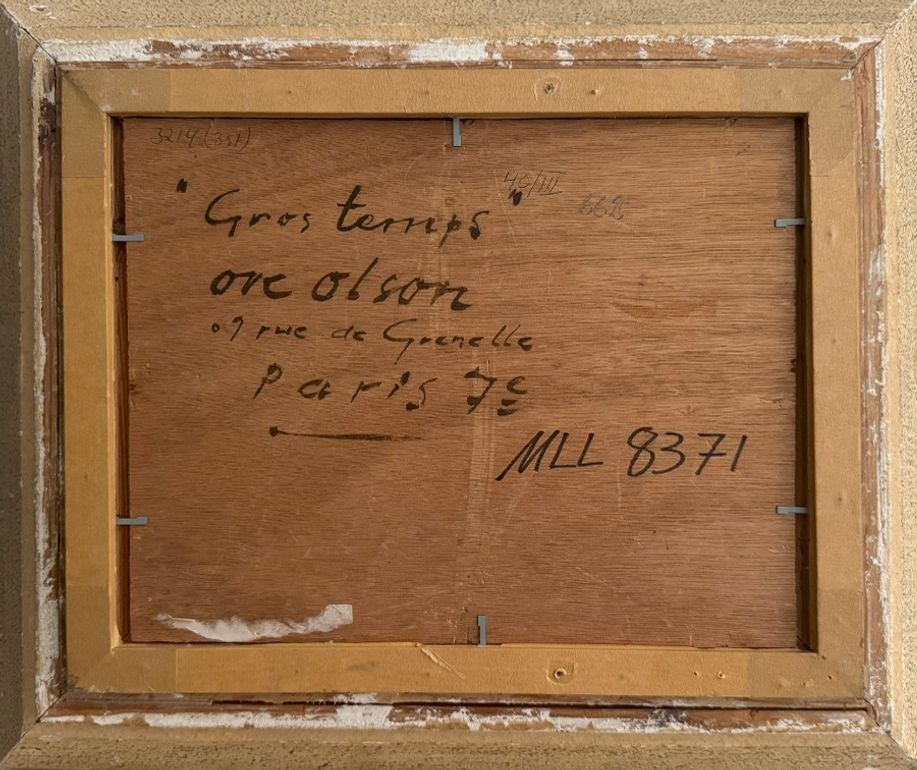 3214 (351)
40/III
662
"Gros temps"
ore olson
09 rue de Grenelle
Paris 7e
MLL 8371